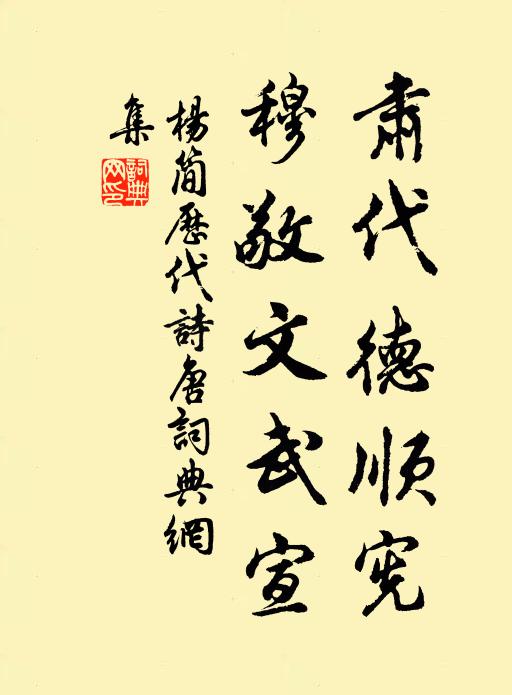 肅代德順宪
穆敬文武宣
楊簡歷代詩唐詞典網
集
詞典
网印